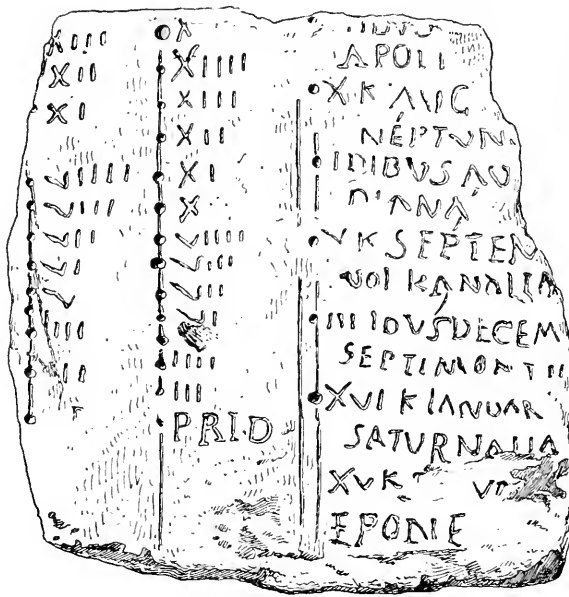 XIIII
XII
XI
VIIII
VIII
VII
VI
V
IIII
X
XIIII
XIII
XII
XI
X
VIIII
VIII
VII
IIII
III
PRID
APOLI
X K AVG
NÉPTUN
IDIBUS AU
DIANA
V K SEPTEM
VOLKANALIA
III IDUS DECEM
SEPTIMONTI
XVI K IANUAR
SATURNALIA
XV K
EPONE